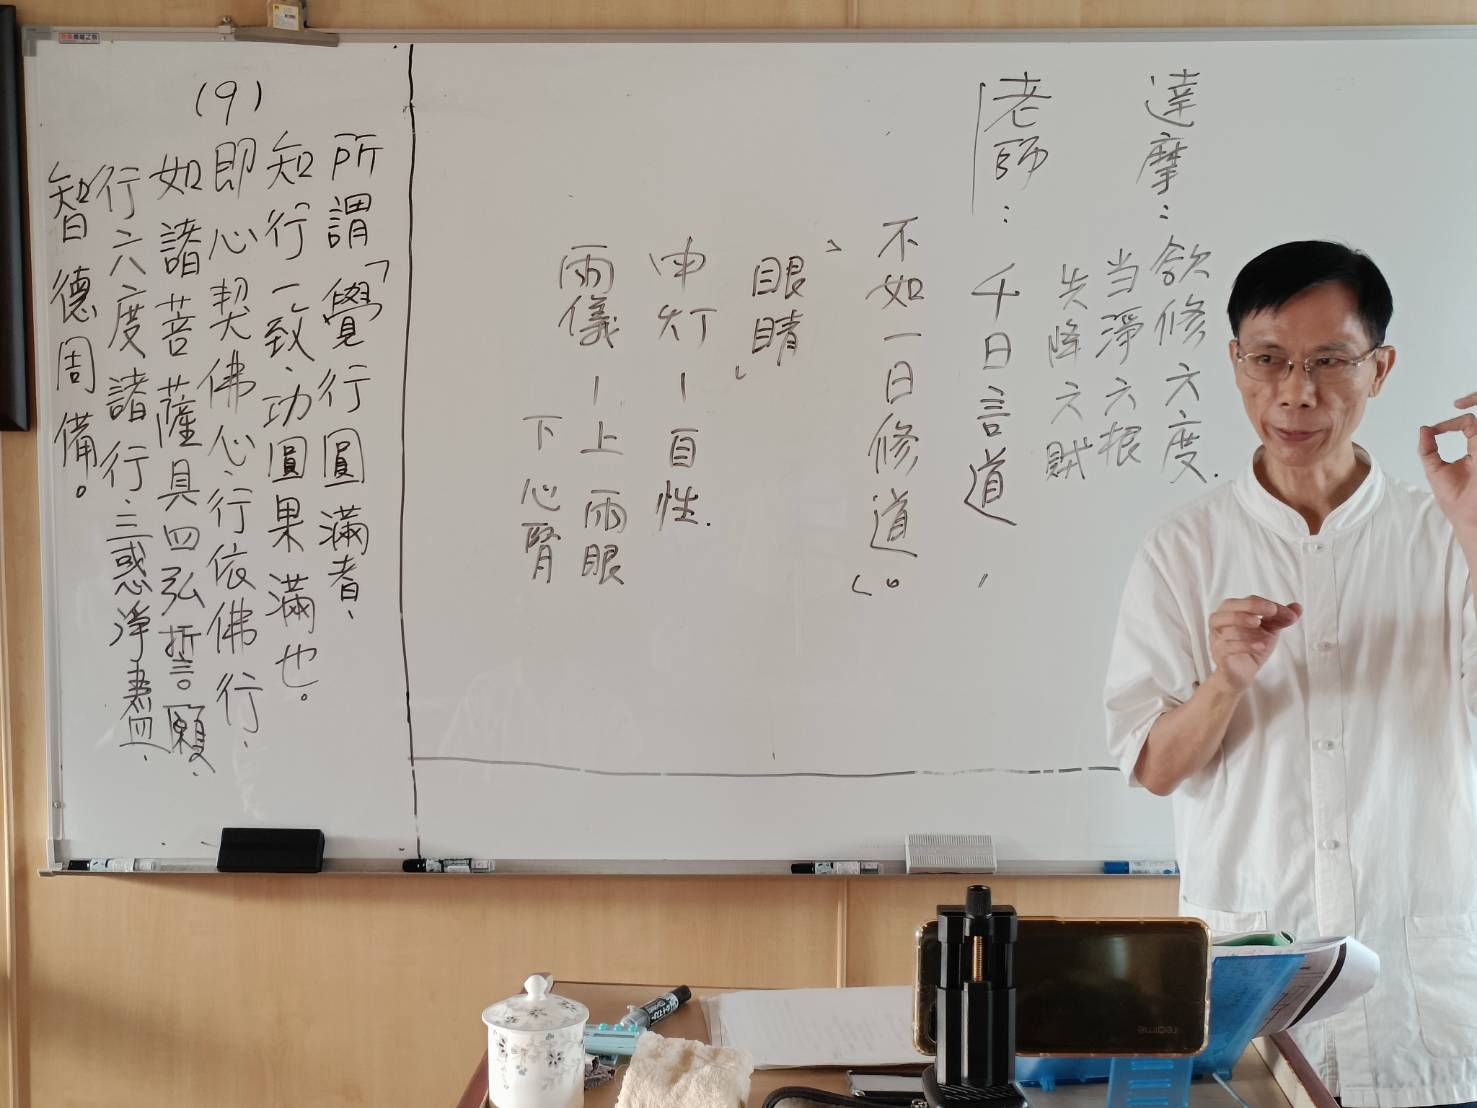 達摩：欲修六度.
当淨六根
先降六賊
老師：千日言道，
不如一日修道。
「眼睛」
申灯－自性.
兩儀－上兩眼
下心腎
(9)
所謂「覺行圓滿者、
知行一致、功圓果滿也。
即心契佛心、行依佛行、
如諸菩薩具四弘誓願、
行六度諸行、三惑淨盡、
智德周備。
realme